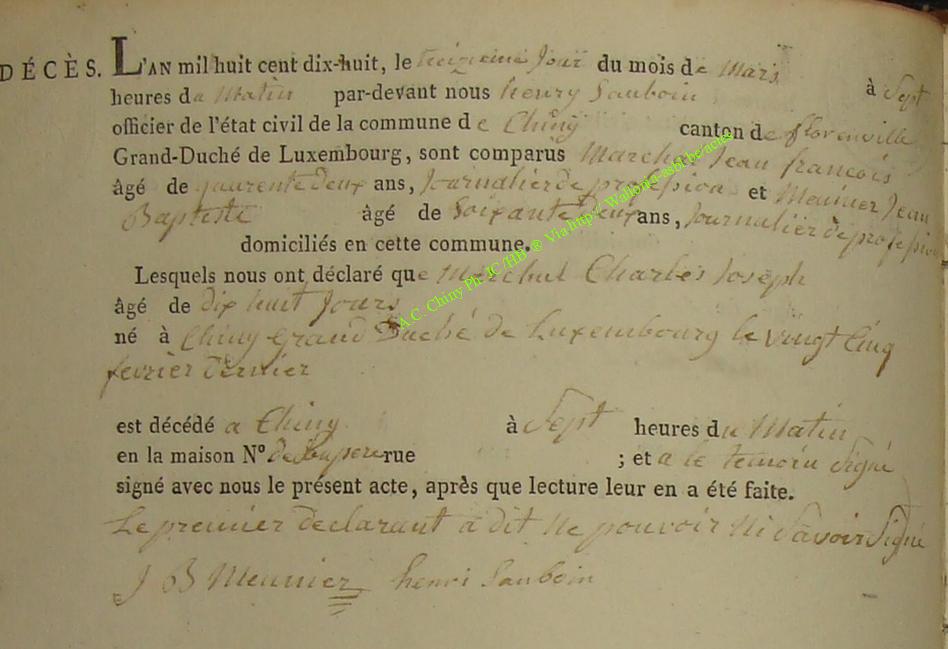 DÉCÈS. L'AN mil huit cent dix-huit, le treizieme Jour du mois de Mars à Sept
heures du Matin par-devant nous henry Sauboin
officier de l'état civil de la commune de Chiny canton de florenville
Grand-Duché de Luxembourg, sont comparus Marchal Jean francois
âgé de quarente deux ans, Journalier de profession et Meunier Jean
Baptiste âgé de Soixante deux ans, Journalier de profession
domiciliés en cette commune.
Lesquels nous ont déclaré que Marchal Charles Joseph
âgé de dix huit Jours
né à Chiny Grand Duché de Luxembourg le vingt Cinq
fevrier dernier
est décédé a Chiny à Sept heures du Matin
en la maison N° de Son pere rue ; et a le temoin Signé
signé avec nous le présent acte, après que lecture leur en a été faite.
Le premier declarant a dit ne pouvoir ni Savoir Signé
J B Meunier henri Sauboin
A.C. Chiny Ph. JC HB ® Via http:// Wallonia-asbl.be/actes/